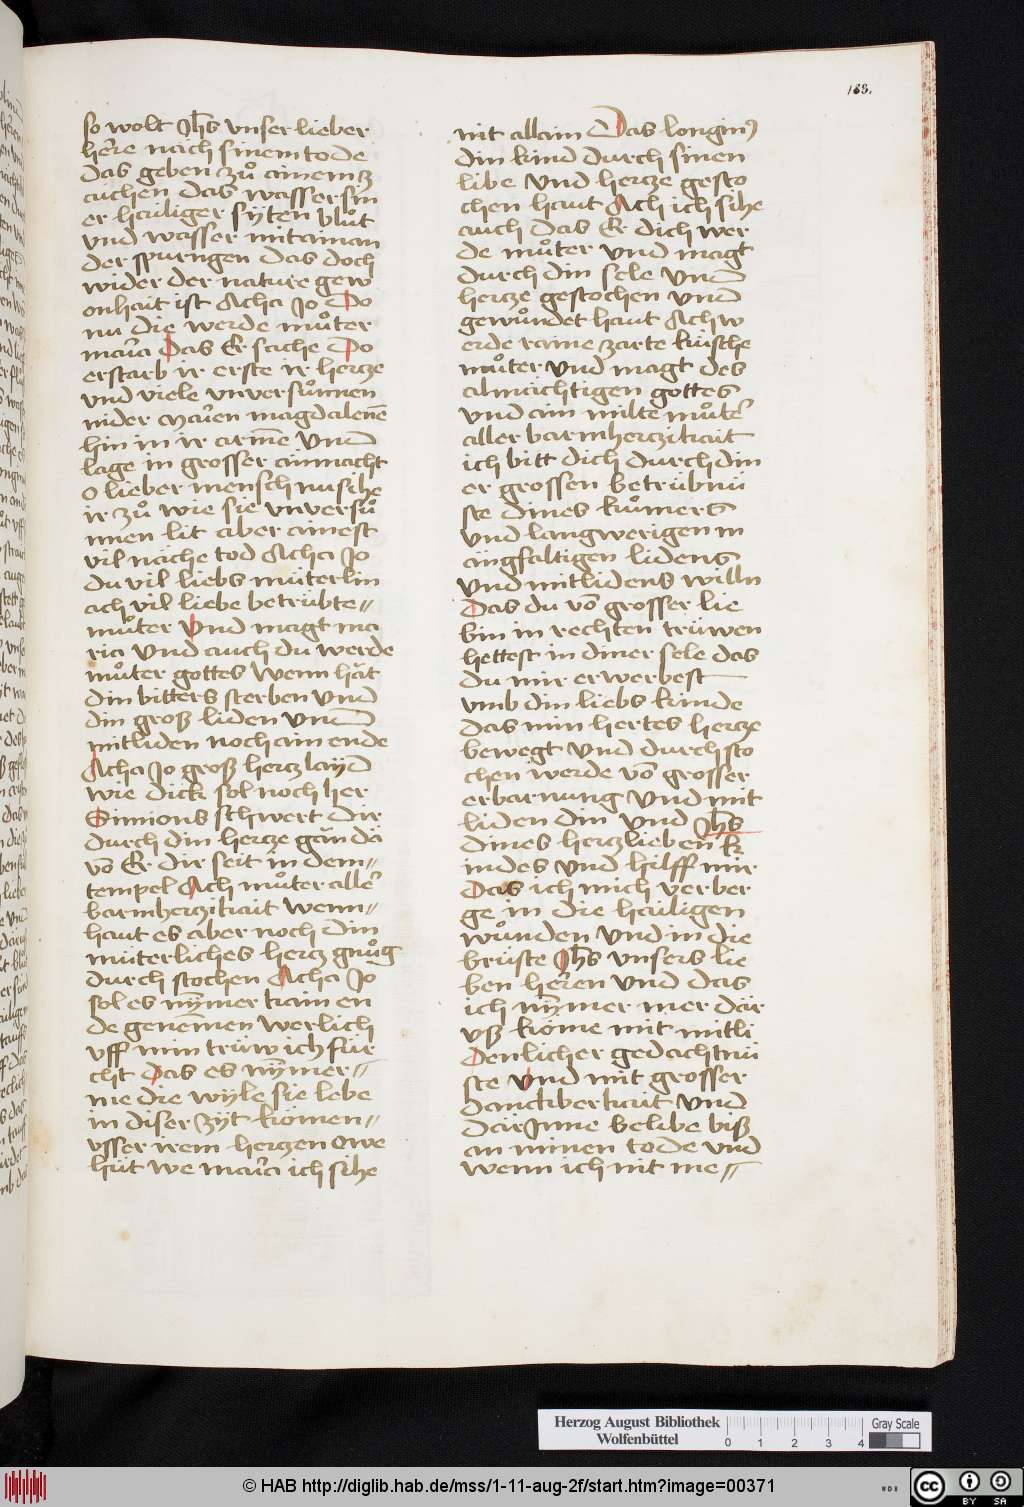 188.
so wolt Jh̄s vnser lieber
here nach sinem tode
das geben zů ainem z
aichen das wasser sin
er hailiger syten blůt
vnd wasser mit ainan
der sprungen das doch
wider der nature gew
onhait ist Acha Jo Do
nu die werde můter
maria das Er sache Do
erstarb ir erste ir hercze
vnd viele vnversůnnen
nider Marien magdalenē
hin in ir armē vnd
lage in grosser ainmacht
o lieber mensch nu sihe
ir zů wie sie vnversů
nnen lit aber ainest
vil nache tod Acha Jo
du vil liebs müterlin
ach vil liebe betrübte〃
můter vnd magt ma
ria vnd auch du werde
můter gottes Wenn hät
din bitters sterben vnd
din groß liden vnd
mitliden noch ain ende
Acha Jo groß hercz layd
wie dick sol noch her
Simions schwert dir
durch din hercze gän dä
vō Er dir seit in dem〃
tempel Ach můter aller
barmhercikait wenn〃
haut es aber noch din
müterliches hercz gnůg
durch stochen Acha Jo
sol es nȳmer kain en
de genēmen werlich
vff min trüw ich für
cht das es nȳmer〃
me die wyle sie lebe
in diser zyt kömen〃
vsser irem herczen Owe
hüt we maria ich sihe
nit allain Das longinꝰ
din kind durch sinen
libe vnd hercze gesto
chen haut Ach ich sihe
auch das Er dich wer
de můter vnd magt
durch din sele vnd
hercze gestochen vnd
gewůndet haut Ach w
erde raine zarte küsche
můter vnd magt des
almächtigen gottes
vnd ain milte můter
aller barmherczikait
ich bitt dich durch din
er grossen betrübnü
ste dines kůmers
vnd langwerigen m
aingfaltigen lidens
vnd mitlidens willn
Das du vō grosser lie
bin in rechten trüwen
hettest in diner sele das
du mir erwerbest
vmb din liebs kinde
das min hertes hercze
bewegt vnd durchsto
chen werde vō grosser
erbarmung vnd mit
liden din vnd Jh̄s
dines herczlieben k
indes vnd hilff mir
Das ich mich verber
ge in die hailigen
wůnden vnd in die
brüste Jh̄s vnsers lie
ben heren vnd das
ich nȳmer mer där
vß köme mit mitli
denlicher gedachtnü
ste vnd mit grosser
danckberkait vnd
där Jnne belibe biß
an minen tode vnd
wenn ich nit me〃
Herzog August Bibliothek
Wolfenbüttel
0 1 2 3 4
Gray Scale
© HAB http://diglib.hab.de/mss/1-11-aug-2f/start.htm?image=00371
WDB
cc BY SA